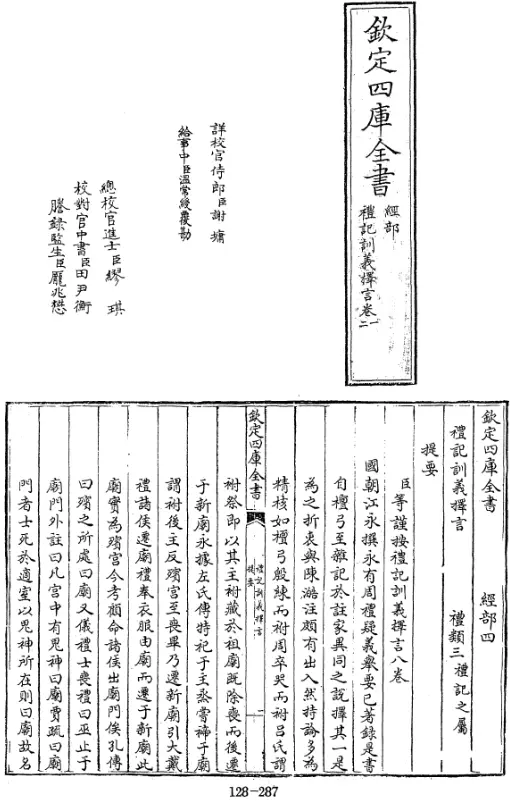 欽定四庫全書
經部
禮記訓義擇言卷一
二
詳校官侍郎臣謝墉
給事中臣溫常綬覆勘
總校官進士臣繆琪
校對官中書臣田尹衡
謄錄監生臣龐兆懋
欽定四庫全書
經部四
禮記訓義擇言
禮類三禮記之屬
提要
臣等謹按禮記訓義擇言八卷
國朝江永撰永有周禮疑義舉要已著錄是書
自檀弓至雜記於註家異同之說擇其一是
為之折衷與陳澔注頗有出入然持論多為
精核如檀弓殷練而祔周卒哭而祔呂氏謂
欽定四庫全書
禮記訓義擇言
提要
一
祔祭即以其主祔藏於祖廟既除喪而後遷
于新廟永據左氏傳特祀于主烝嘗禘于廟
謂祔後主反殯宮至喪畢乃遷新廟引大戴
禮諸侯遷廟禮奉衣服由廟而遷于新廟此
廟實為殯宮今考顧命諸侯出廟門俟孔傳
曰殯之所處曰廟又儀禮士喪禮曰巫止于
廟門外註曰凡宮中有鬼神曰廟賈疏曰廟
門者士死於適室以鬼神所在則曰廟故名
128-287